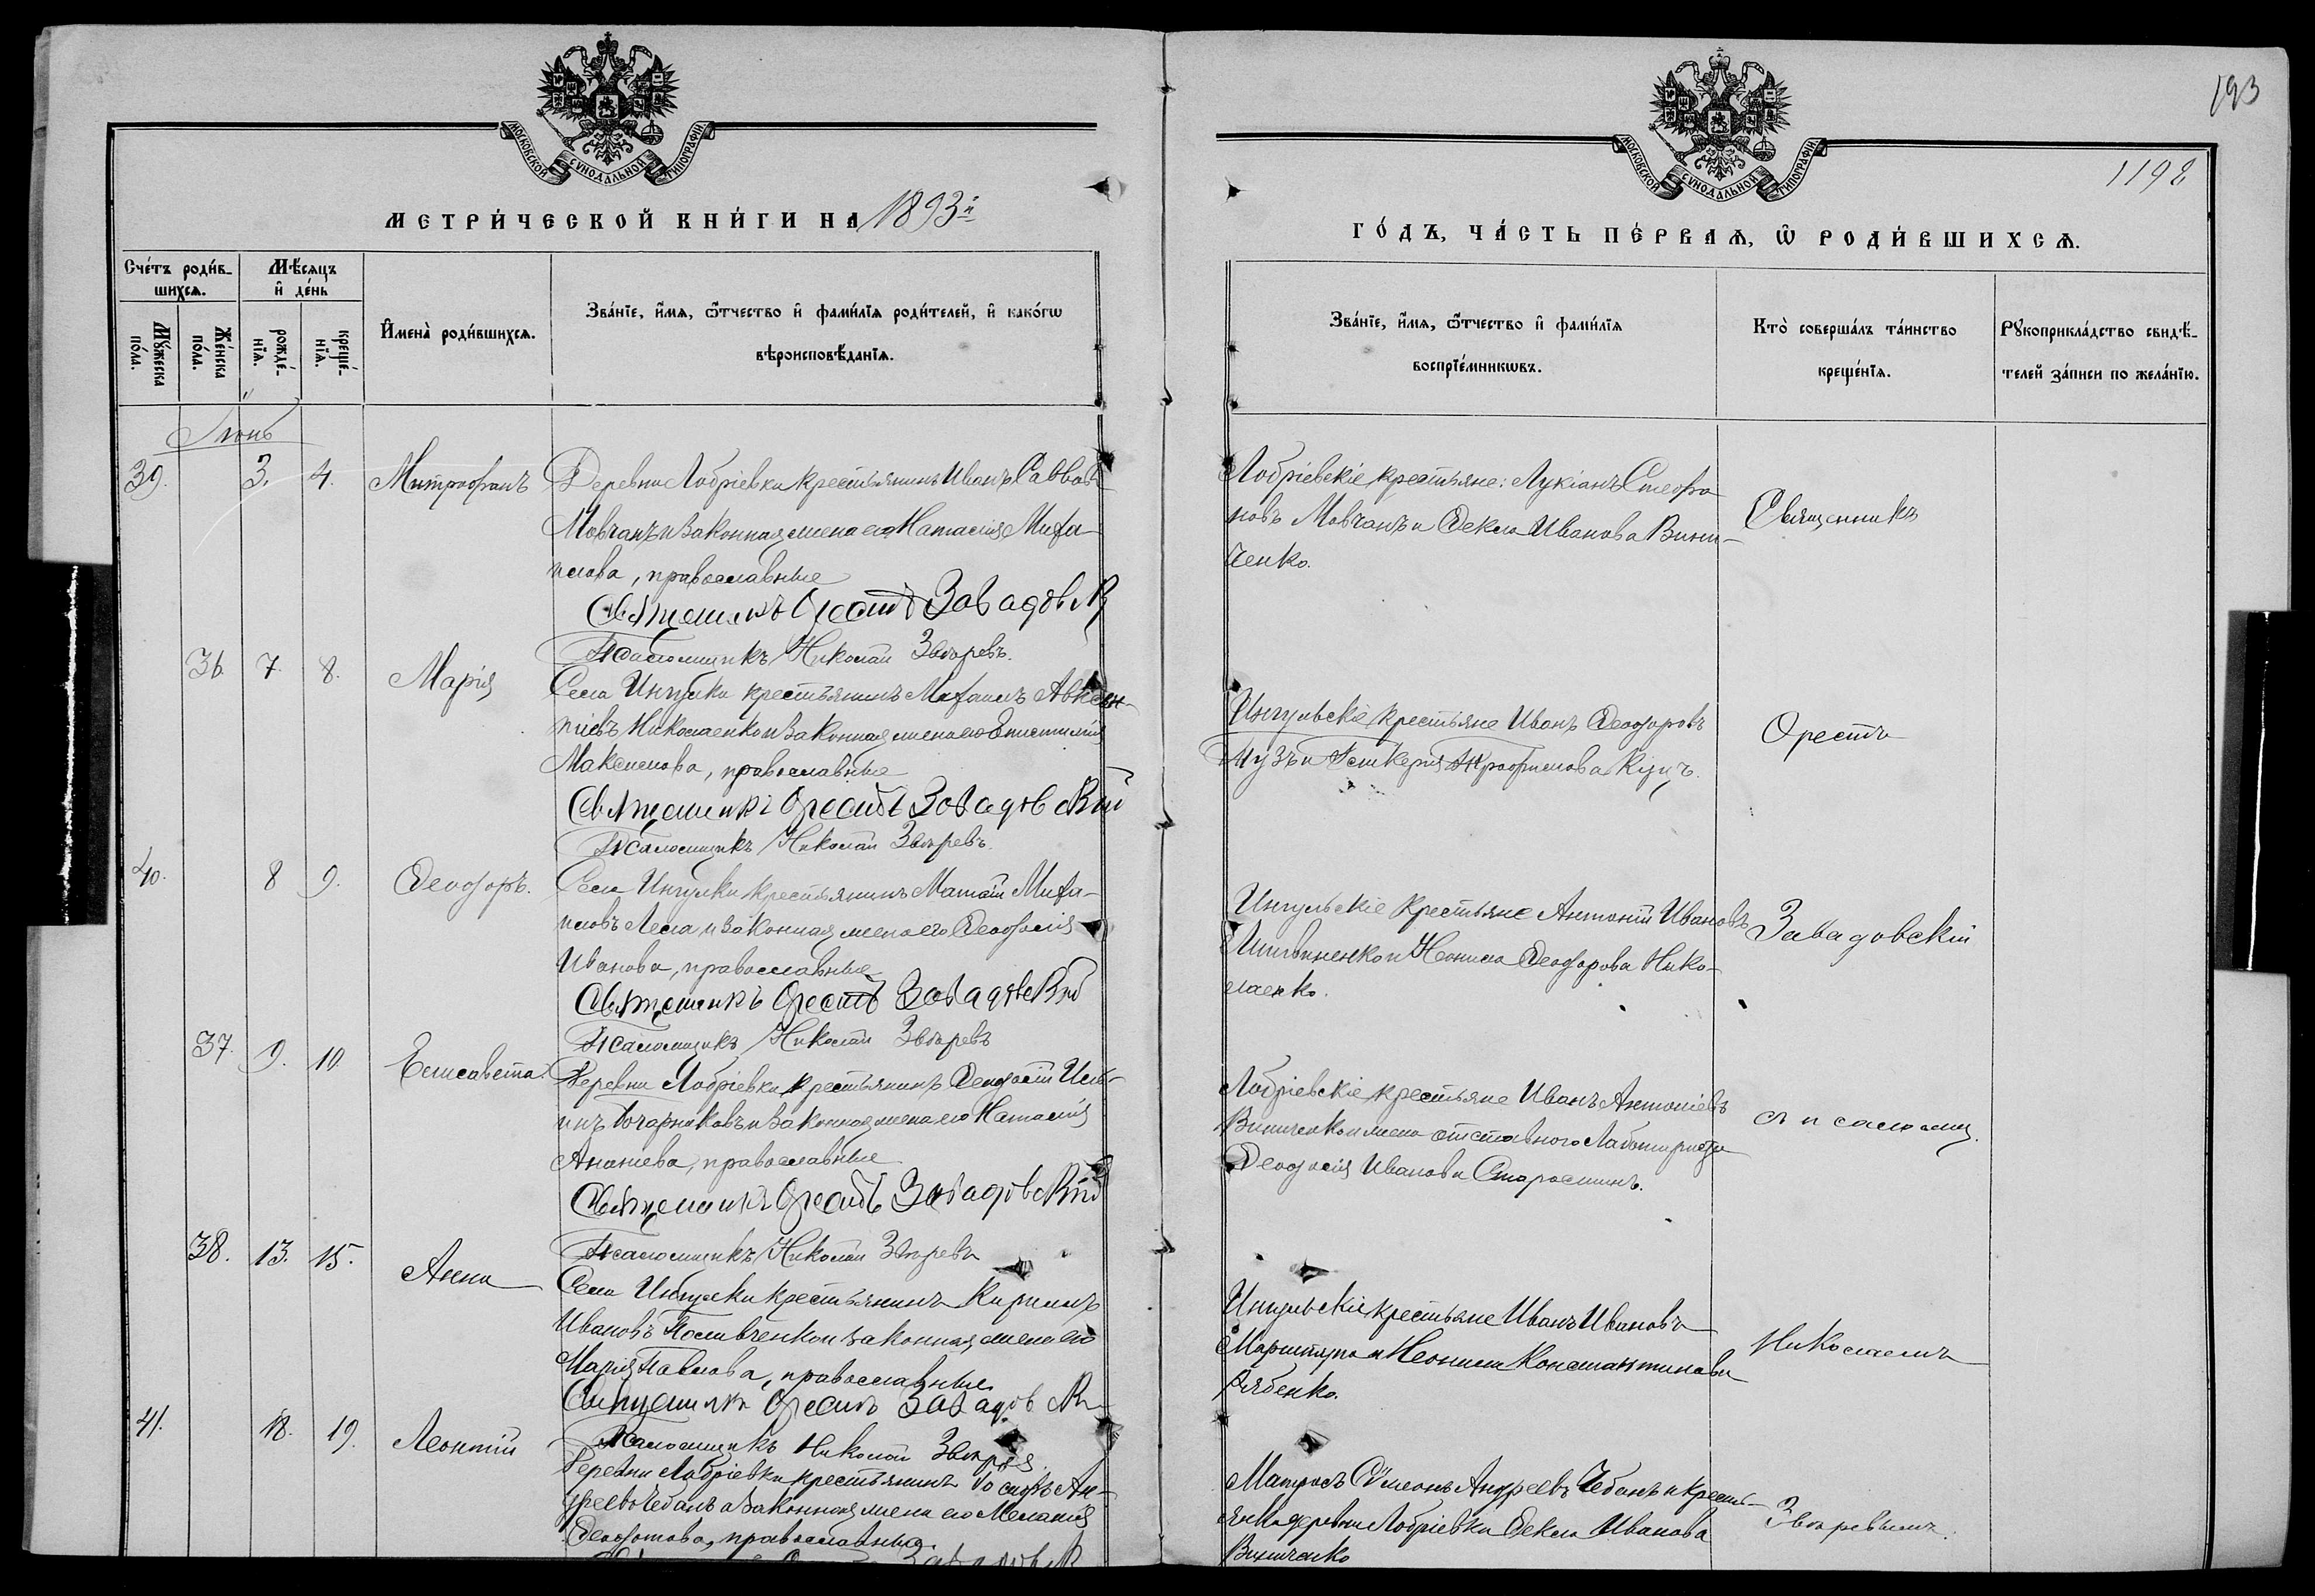 193
1192
МОСКОВСКОЙ СѴНОДАЛЬНОЙ ТИПОГРАФІИ.
МОСКОВСКОЙ СѴНОДАЛЬНОЙ ТИПОГРАФІИ.
МЕТРИ́ЧЕСКОЙ КНИ́ГИ НА 1893й
ГО́ДЪ, ЧА́СТЬ ПЕ́РВАѦ, Ѡ РОДИ́ВШИХСѦ.
Сче́тъ роди́в-
шихсѧ.
Мꙋ́жеска
по́ла.
Же́нска
по́ла.
Мѣ́сѧцъ
и҆ де́нь
рожде́-
нїѧ.
креще́-
нїѧ.
И҆мена̀ роди́вшихсѧ.
Зва́нїе, и҆́мѧ, ѻ҆́тчество и҆ фами́лїѧ роди́телей, и҆ како́гѡ
вѣроисповѣ́данїѧ.
Зва́нїе, и҆́мѧ, ѻ҆́тчество и҆ фами́лїѧ
воспрїе́мникѡвъ.
Кто̀ соверша́лъ та́инство
креще́нїѧ.
Рꙋкоприкла́дство свидѣ́-
телей за́писи по жела́нїю.
Іюнь
39. 3. 4. Митрофанъ
Деревни Лобріевки крестьянинъ Иванъ Саввовъ
Мовчанъ и законная жена его Наталія Миха-
илова, православные
Священникъ Орестъ Завадовскій
Псаломщикъ Николай Звѣревъ.
Лобріевскіе крестьяне: Лукіанъ Стефа-
новъ Мовчанъ и Ѳекла Иванова Вини-
ченко.
Священникъ
36. 7. 8. Марія
Села Ингулки крестьянинъ Михаилъ Авксен-
тіевъ Николаенко и законная жена его Епистимія
Максимова, православные
Священникъ Орестъ Завадовскій
Псаломщикъ Николай Звѣревъ.
Ингульскіе крестьяне Иванъ Ѳеодоровъ
Гликерія Куцъ.
Орестъ
40. 8 9. Ѳеодоръ.
Села Ингулки крестьянинъ Матѳій Миха-
иловъ Леса и законная жена его Ѳеодосія
Иванова, православные
Священникъ Орестъ Завадовскій
Псаломщикъ Николай Звѣревъ
Ингульскіе крестьяне Антоній Ивановъ
Литвиненко и Неонила Ѳеодорова Нико-
лаенко.
Завадовскій
37. 9. 10. Елисавета.
Деревни Лобріевки крестьянинъ Ѳеодосій Иль-
инъ Бочарниковъ и законная жена его Наталія
Ананіева, православные
Священникъ Орестъ Завадовскій
Псаломщикъ Николай Звѣревъ
Лобріевскіе крестьяне Иванъ Антоніевъ
Виниченко и жена отставного
Ѳеодосія Иванова
съ псаломщ.
38. 13. 15. Анна
Села Ингулки крестьянинъ Кириллъ
Ивановъ и законная жена его
Марія Павлова, православные
Священникъ Орестъ Завадовскій
Псаломщикъ Николай Звѣревъ.
Ингульскіе крестьяне Иванъ Ивановъ
и Неонила Константинова
Рябенко.
Николаемъ
41. 18. 19. Леонтій
Деревни Лобріевки крестьянинъ Іосифъ Ан-
дреевъ Чебанъ и законная жена его Меланія
Ѳеодотова, православные.
Матросъ Сѵмеонъ Андреевъ Чебанъ и кресть-
янка деревни Лобріевки Ѳекла Иванова
Виниченко
Звѣревымъ.